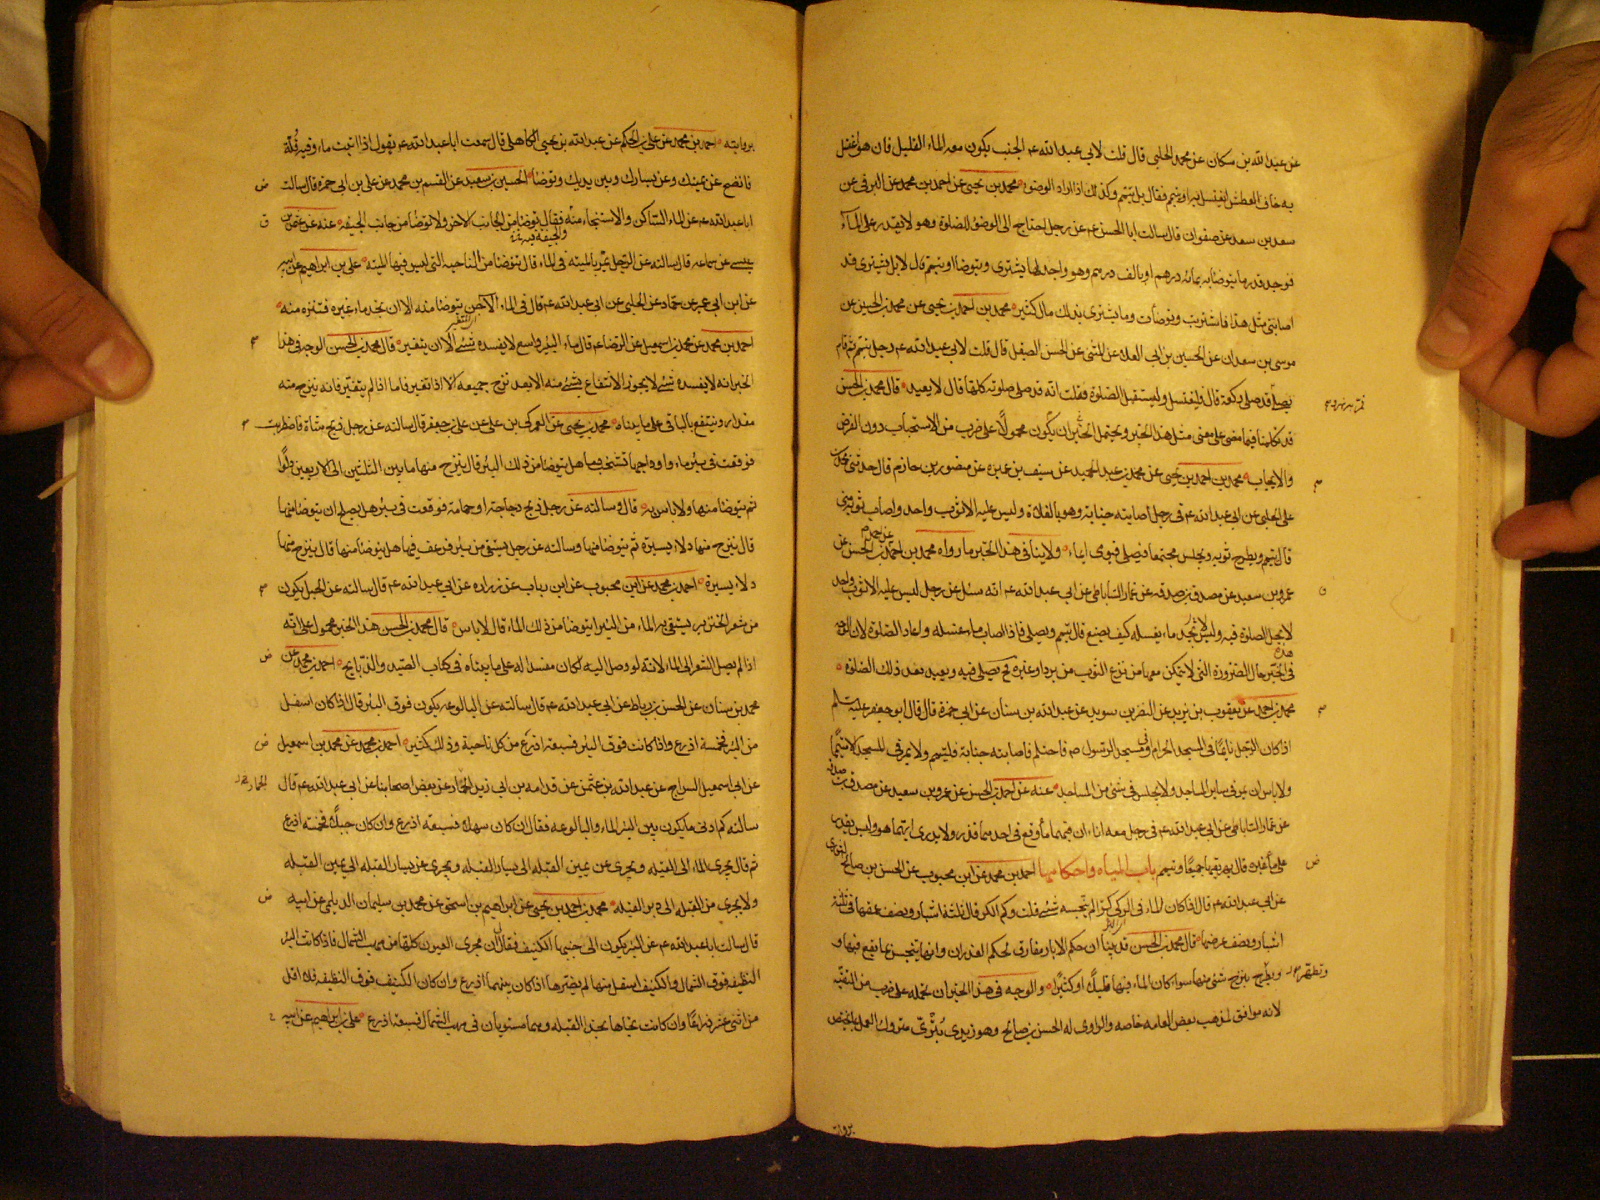 عن عبد الله بن مسكان عن محمد الحلبي قال قلت لابي عبد الله ع م الجنب يكون معه الماء القليل فان هو اغتسل
به خاف العطش ايغتسل به او يتيمم فقال بل يتيمم وكذلك اذا اراد الوضوء محمد بن يحيى عن احمد بن محمد عن البرقي عن
سعد بن سعد عن صفوان قال سالت ابا الحسن ع م عن رجل احتاج الى الوضوء للصلوة وهو لا يقدر على الماء
فوجد قدر ما يتوضا به بمائة درهم او بالف درهم وهو واجد لها يشتري ويتوضا او يتيمم قال لا بل يشتري قد
اصابني مثل هذا فاشتريت وتوضات وما يشتري بذلك مال كثير محمد بن احمد بن يحيى عن محمد بن الحسين عن
موسى بن سعدان عن الحسين بن ابي العلا عن المثنى عن الحسن الصيقل قال قلت لابي عبد الله ع م رجل تيمم ثم قام
يصلي قد صلى ركعة قال فليغتسل وليستقبل الصلوة فقلت انه قد صلى صلوته كلها قال لا يعيد قال محمد بن الحسن
قد تكلمنا فيما مضى على معنى مثل هذا الخبر ويحتمل الخبر ان يكون محمولا على ضرب من الاستحباب دون الفرض
والايجاب محمد بن احمد بن يحيى عن محمد بن عبد الحميد عن سيف بن عميرة عن منصور بن حازم قال حدثني محمد بن
علي الحلبي عن ابي عبد الله ع م في رجل اصابته جنابة وهو بالفلاة وليس عليه الا ثوب واحد واصاب ثوبه مني
قال يتيمم ويطرح ثوبه ويجلس مجتمعا فيصلي فيومي ايماء ولا ينافي هذا الخبر ما رواه محمد بن احمد بن الحسن عن
عمرو بن سعيد عن مصدق بن صدقه عن عمار الساباطي عن ابي عبد الله ع م انه سئل عن رجل ليس عليه الا ثوب واحد
لا تحل الصلوة فيه وليس يجد ماء يغسله كيف يصنع قال يتيمم ويصلي فاذا اصاب ماء غسله واعاد الصلوة لان الوجه
في الخبر حال الضرورة التي لا يتمكن معها من نزع الثوب من برد او غيره يصلي فيه ويعيد بعد ذلك الصلوة
محمد بن احمد عن يعقوب بن يزيد عن النضر بن سويد عن عبد الله بن سنان عن ابي حمزة قال قال ابو جعفر عليه السلم
اذا كان الرجل نائما في المسجد الحرام او مسجد الرسول ص م فاحتلم فاصابته جنابة فليتيمم ولا يمر في المسجد الا متيمما
ولا باس ان يمر في ساير المساجد ولا يجلس في شئ من المساجد عنه عن احمد بن الحسن عن عمرو بن سعيد عن مصدق بن صدقه
عن عمار الساباطي عن ابي عبد الله ع م في رجل معه اناءان فيهما ماء وقع في احدهما قذر ولا يدري ايهما هو وليس يقدر
على ماء غيره قال يهريقهما جميعا ويتيمم باب المياه واحكامها احمد بن محمد عن ابن محبوب عن الحسن بن صالح الثوري
عن ابي عبد الله ع م قال اذا كان الماء في الركي كرا لم ينجسه شئ قلت وكم الكر قال ثلثة اشبار ونصف عمقها في ثلثة
اشبار ونصف عرضها قال محمد بن الحسن قد بينا ان حكم الابار مفارق لحكم الغدران وانها ينجس بما يقع فيها و
ويطهر بنزح شئ منها سواء كان الماء فيها قليلا او كثيرا والوجه في هذا الخبر ان نحمله على ضرب من التقيه
لانه موافق لمذهب بعض العامه خاصه والراوي له الحسن بن صالح وهو زيدي بتري متروك العمل بما يختص
بروايته
بروايته احمد بن محمد عن علي بن الحكم عن عبد الله بن يحيى الكاهلي قال سمعت ابا عبد الله ع م يقول اذا اتيت ماء وفيه قلة
فانضح عن يمينك وعن يسارك وبين يديك وتوضا الحسين بن سعيد عن القسم بن محمد عن علي بن ابي حمزة قال سالت
ابا عبد الله ع م عن الماء الساكن والاستنجاء منه والجيفة فيه فقال توضا من الجانب الاخر ولا توضا من جانب الجيفه عنه عن عثمن بن
عيسى عن سماعه قال سالته عن الرجل يمر بالميته في الماء قال يتوضا من الناحيه التي ليس فيها الميته علي بن ابراهيم عن ابيه
عن ابن ابي عمير عن حماد عن الحلبي عن ابي عبد الله ع م قال في الماء الآجن يتوضا منه الا ان تجد ماء غيره فتنزه منه
احمد بن محمد عن محمد بن اسمعيل عن الرضا ع م قال ماء البئر واسع لا يفسده شئ الا ان يتغير قال محمد بن الحسن الوجه في هذا
الخبر انه لا يفسده شئ لا يجوز الانتفاع بشئ منه الا بعد نزح جميعه الا اذا تغير فاما اذا لم يتغير فانه ينزح منه
مقدار وينتفع بالباقي على ما بيناه محمد بن يحيى عن العمركي بن علي عن علي بن جعفر قال سالته عن رجل ذبح شاة فاضطربت
فوقعت في بئر ماء واوداجها تشخب دما هل يتوضا من ذلك البئر قال ينزح منها ما بين الثلثين الى الاربعين دلوا
ثم يتوضا منها ولا باس به قال وسالته عن رجل ذبح دجاجة او حمامة فوقعت في بئر هل يصلح ان يتوضا منها
قال ينزح منها دلاء يسيرة ثم يتوضا منها وسالته عن رجل يستقي من بئر فرعف فيها هل يتوضا منها قال ينزح منها
دلاء يسيرة احمد بن محمد عن ابن محبوب عن ابن رباب عن زراره عن ابي عبد الله ع م قال سالته عن الحبل يكون
من شعر الخنزير يستقى به الماء من البئر ايتوضا من ذلك الماء قال لا باس قال محمد بن الحسن هذا الخبر محمول على انه
اذا لم يصل الشعر الى الماء لانه لو وصل اليه لكان مفسدا له على ما بيناه في كتاب الصيد والذبايح احمد بن محمد عن
محمد بن سنان عن الحسن بن رباط عن ابي عبد الله ع م قال سالته عن البالوعه يكون فوق البئر قال اذا كان اسفل
من البئر فخمسة اذرع واذا كانت فوق البئر فسبعة اذرع من كل ناحية وذلك كثير احمد بن محمد عن محمد بن اسمعيل
عن ابي اسمعيل السراج عن عبد الله بن عثمن عن قدامه بن ابي زيد الحمار عن بعض اصحابنا عن ابي عبد الله ع م قال
سالته كم ادنى ما يكون بين البئر الماء والبالوعه فقال ان كان سهلا فسبعه اذرع وان كان جبلا فخمسة اذرع
ثم قال يجري الماء الى القبله ويجري عن يمين القبله الى يسار القبله ويجري عن يسار القبله الى يمين القبله
ولا يجري من القبله الى دبر القبله محمد بن احمد بن يحيى عن ابراهيم بن اسحق عن محمد بن سليمان الديلمي عن ابيه
قال سالت ابا عبد الله ع م عن البئر يكون الى جنبها الكنيف فقال ان مجرى العيون كلها من مهب الشمال فاذا كانت البئر
النظيفه فوق الشمال والكنيف اسفل منها لم يضرها اذا كان بينهما اذرع وان كان الكنيف فوق النظيفه فلا اقل
من اثنى عشر ذراعا وان كانت تجاها بحذاء القبله وهما مستويان في مهب الشمال فسبعة اذرع علي بن ابراهيم عن ابيه